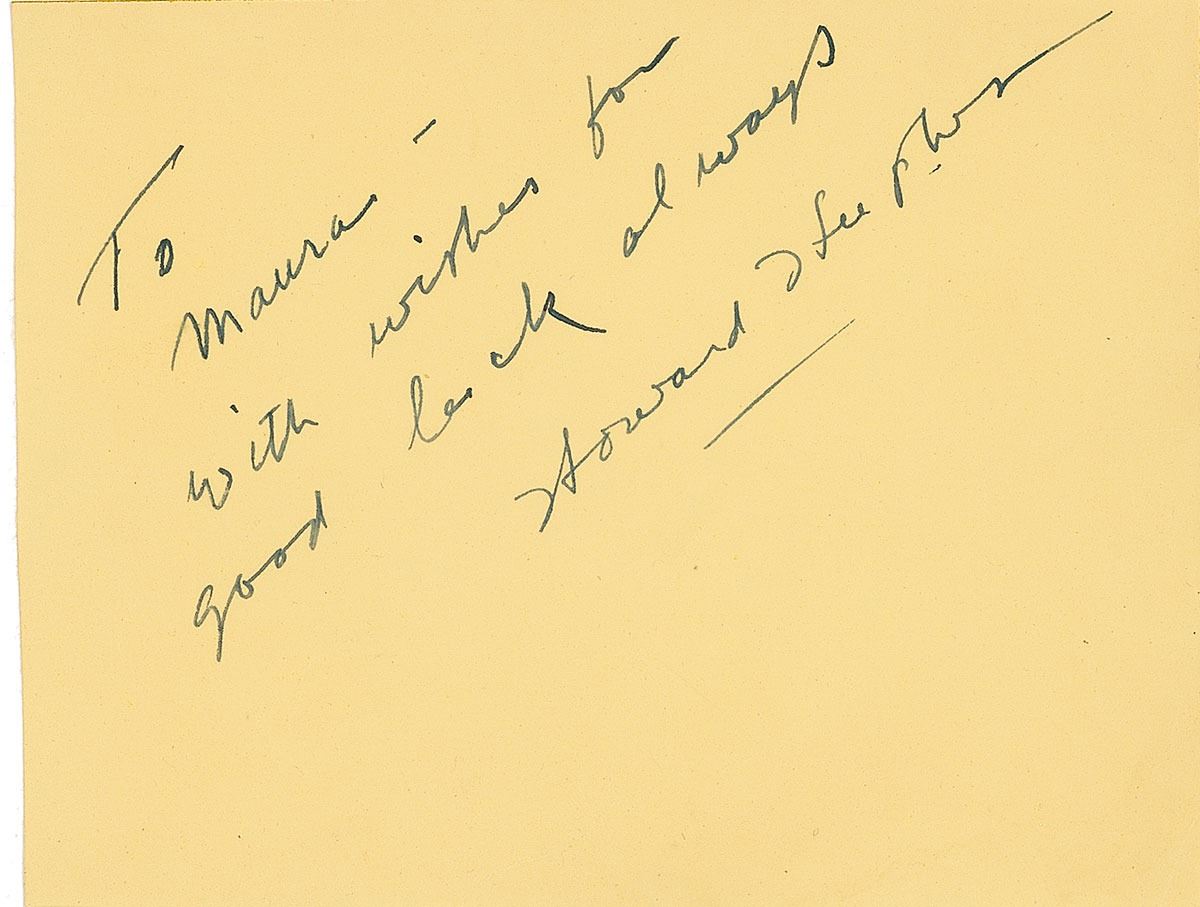 To
Maura -
with wishes for
good luck always
Howard